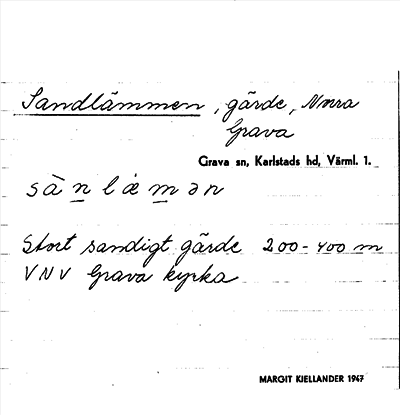 Sandlämmen, gärde, Norra
Grava
Grava sn, Karlstads hd, Värml. 1.
sàn læ̀mən
Stort sandigt gärde 200-400 m
VNV Grava kyrka
MARGIT KIELLANDER 1947